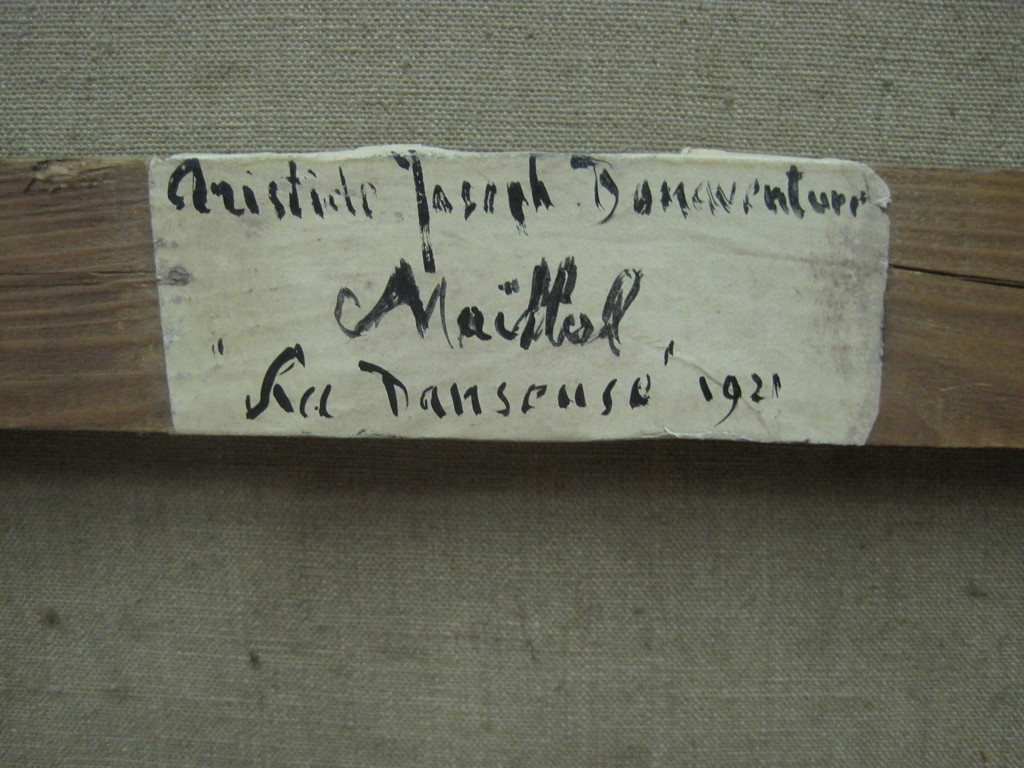 Aristide Joseph Bonaventure
Maillol
"La Danseuse" 1921